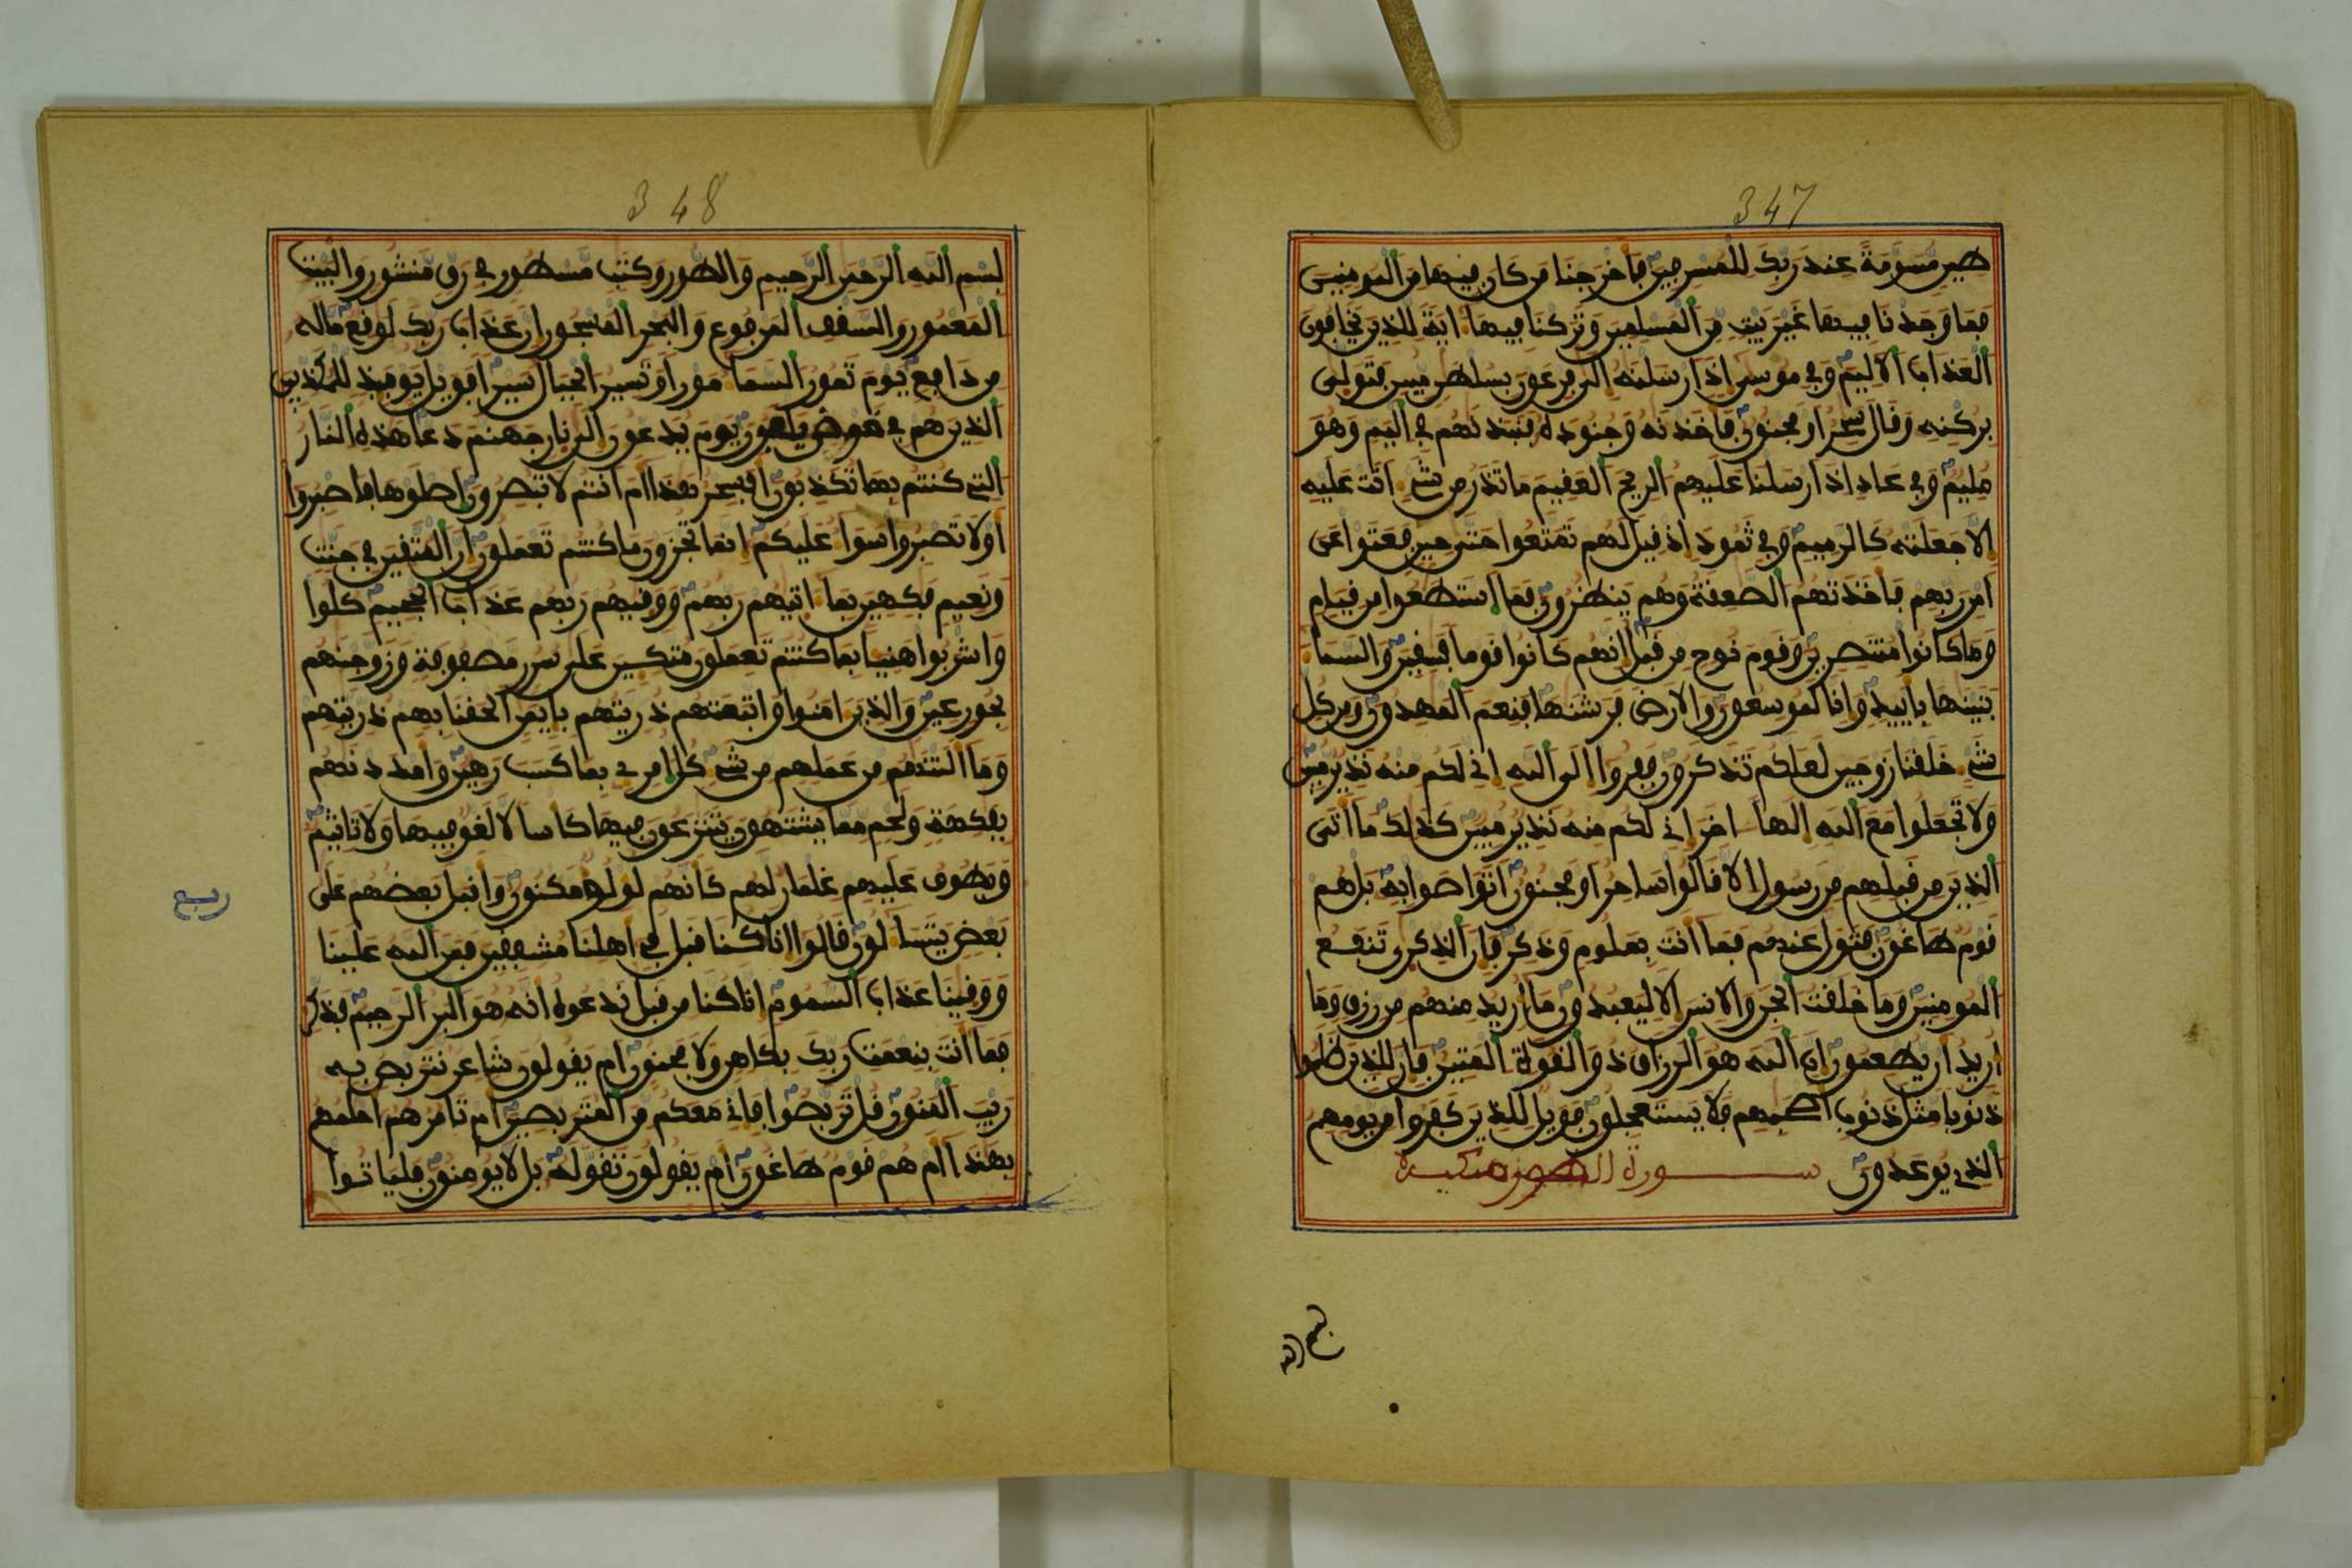 347
طين مسومة عند ربك للمسرفين فاخرجنا من كان فيها من المومنين
فما وجدنا فيها غير بيت من المسلمين وتركنا فيها ءاية للذين يخافون
العذاب الاليم وفي موسى اذ ارسلنه الى فرعون بسلطن مبين فتولى
بركنه وقال سحر او مجنون فاخذنه وجنوده فنبذنهم في اليم وهو
مليم وفي عاد اذ ارسلنا عليهم الريح العقيم ما تذر من شيء اتت عليه
الا جعلته كالرميم وفي ثمود اذ قيل لهم تمتعوا حتى حين فعتوا عن
امر ربهم فاخذتهم الصعقة وهم ينظرون فما استطعوا من قيام
وما كانوا منتصرين وقوم نوح من قبل انهم كانوا قوما فسقين والسما
بنينها باييد وانا لموسعون والارض فرشنها فنعم المهدون ومن كل
شيء خلقنا زوجين لعلكم تذكرون ففروا الى الله اني لكم منه نذير مبين
ولا تجعلوا مع الله الها اخر اني لكم منه نذير مبين كذلك ما اتى
الذين من قبلهم من رسول الا قالوا ساحر او مجنون اتواصوا به بل هم
قوم طاغون فتول عنهم فما انت بملوم وذكر فان الذكرى تنفع
المومنين وما خلقت الجن والانس الا ليعبدون ما اريد منهم من رزق وما
اريد ان يطعمون ان الله هو الرزاق ذو القوة المتين فان للذين ظلموا
ذنوبا مثل ذنوب اصحبهم فلا يستعجلون فويل للذين كفروا من يومهم
الذي يوعدون سورة الطور مكية
بسم الله
348
بسم الله الرحمن الرحيم والطور وكتب مسطور في رق منشور والبيت
المعمور والسقف المرفوع والبحر المسجور ان عذاب ربك لوقع ما له
من دافع يوم تمور السما مورا وتسير الجبال سيرا فويل يومئذ للمكذبين
الذين هم في خوض يلعبون يوم يدعون الى نار جهنم دعا هذه النار
التي كنتم بها تكذبون افسحر هذا ام انتم لا تبصرون اصلوها فاصبروا
او لا تصبروا سوا عليكم انما تجزون ما كنتم تعملون ان المتقين في جنت
ونعيم فكهين بما اتيهم ربهم ووقيهم ربهم عذاب الجحيم كلوا
واشربوا هنيا بما كنتم تعملون متكين على سرر مصفوفة وزوجنهم
بحور عين والذين امنوا واتبعتهم ذريتهم بايمن الحقنا بهم ذريتهم
وما التنهم من عملهم من شيء كل امرئ بما كسب رهين وامددنهم
بفكهة ولحم مما يشتهون يتنزعون فيها كاسا لا لغو فيها ولا تاثيم
ويطوف عليهم غلمان لهم كانهم لولو مكنون واقبل بعضهم على
بعض يتسا لون قالوا انا كنا قبل في اهلنا مشفقين فمن الله علينا
ووقينا عذاب السموم انا كنا من قبل ندعوه انه هو البر الرحيم فذكر
فما انت بنعمت ربك بكاهن ولا مجنون ام يقولون شاعر نتربص به
ريب المنون قل تربصوا فاني معكم من المتربصين ام تامرهم احلمهم
بهذا ام هم قوم طاغون ام يقولون تقوله بل لا يومنون فلياتوا
ربع